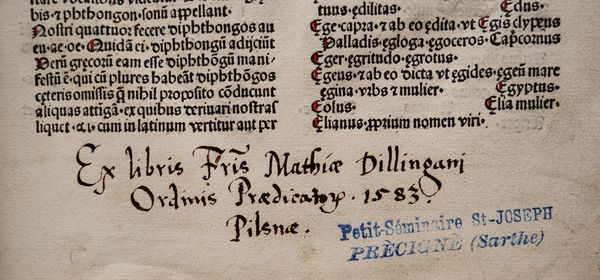 bis, & phthongon, sonū appellant.
Nostri quattuor fecere diphthongos au
eu, ae, oe. Quidā ei, diphthongū adijciūt
Verū grecorū eam esse diphthōgū mani-
festū ē, qui cū plures habeāt diphthōgos
ceteris omissis nihil proposito cōducunt
aliquas attigā, ex quibus deriuari nostras
liquet. cum in latinum vertitur aut per
tuns, editas. Edus.
Ege, capra, & ab eo edita, vt Egis clypeus
Palladis, egloga, egoceros, Capcornus
Eger, egritudo, egrotus.
Egeus, & ab eo dicta vt egides, egeū mare
egina, vrbs & mulier. Egyptus.
Eolus. Elia mulier.
Elianus, proprium nomen viri.
Ex libris Fris Mathiæ Dillingani
Ordinis Prædicatoꝝ. 1583.
Pilsnæ.
Petit-Séminaire St-JOSEPH
PRÉCIGNÉ (Sarthe)